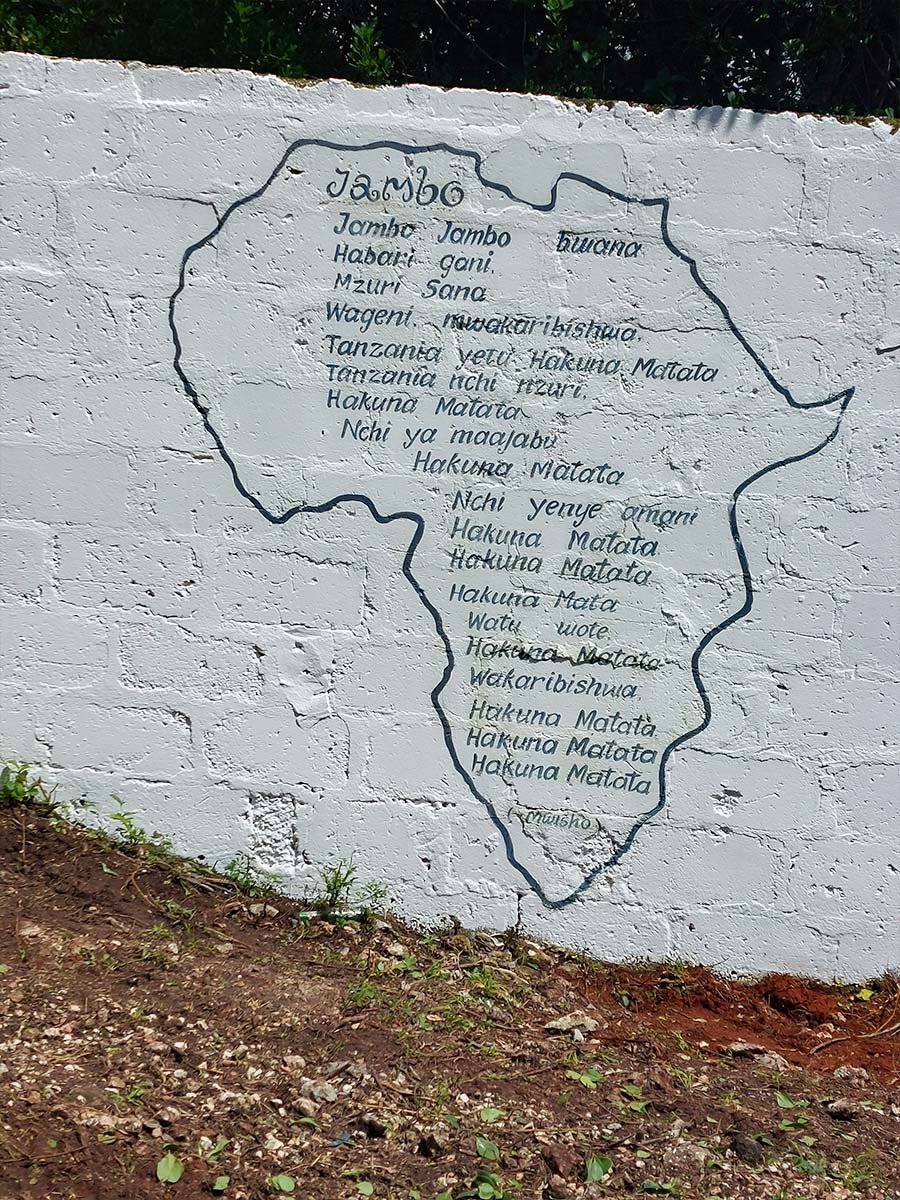 Jambo
Jambo Jambo bwana
Habari gani.
Mzuri Sana
Wageni. mwakaribishwa.
Tanzania yetu Hakuna Matata
Tanzania nchi nzuri.
Hakuna Matata
Nchi ya maajabu
Hakuna Matata
Nchi yenye amani
Hakuna Matata
Hakuna Matata
Hakuna Mata
Watu wote
Hakuna Matata
Wakaribishwa.
Hakuna Matata
Hakuna Matata
Hakuna Matata
(Mwisho)